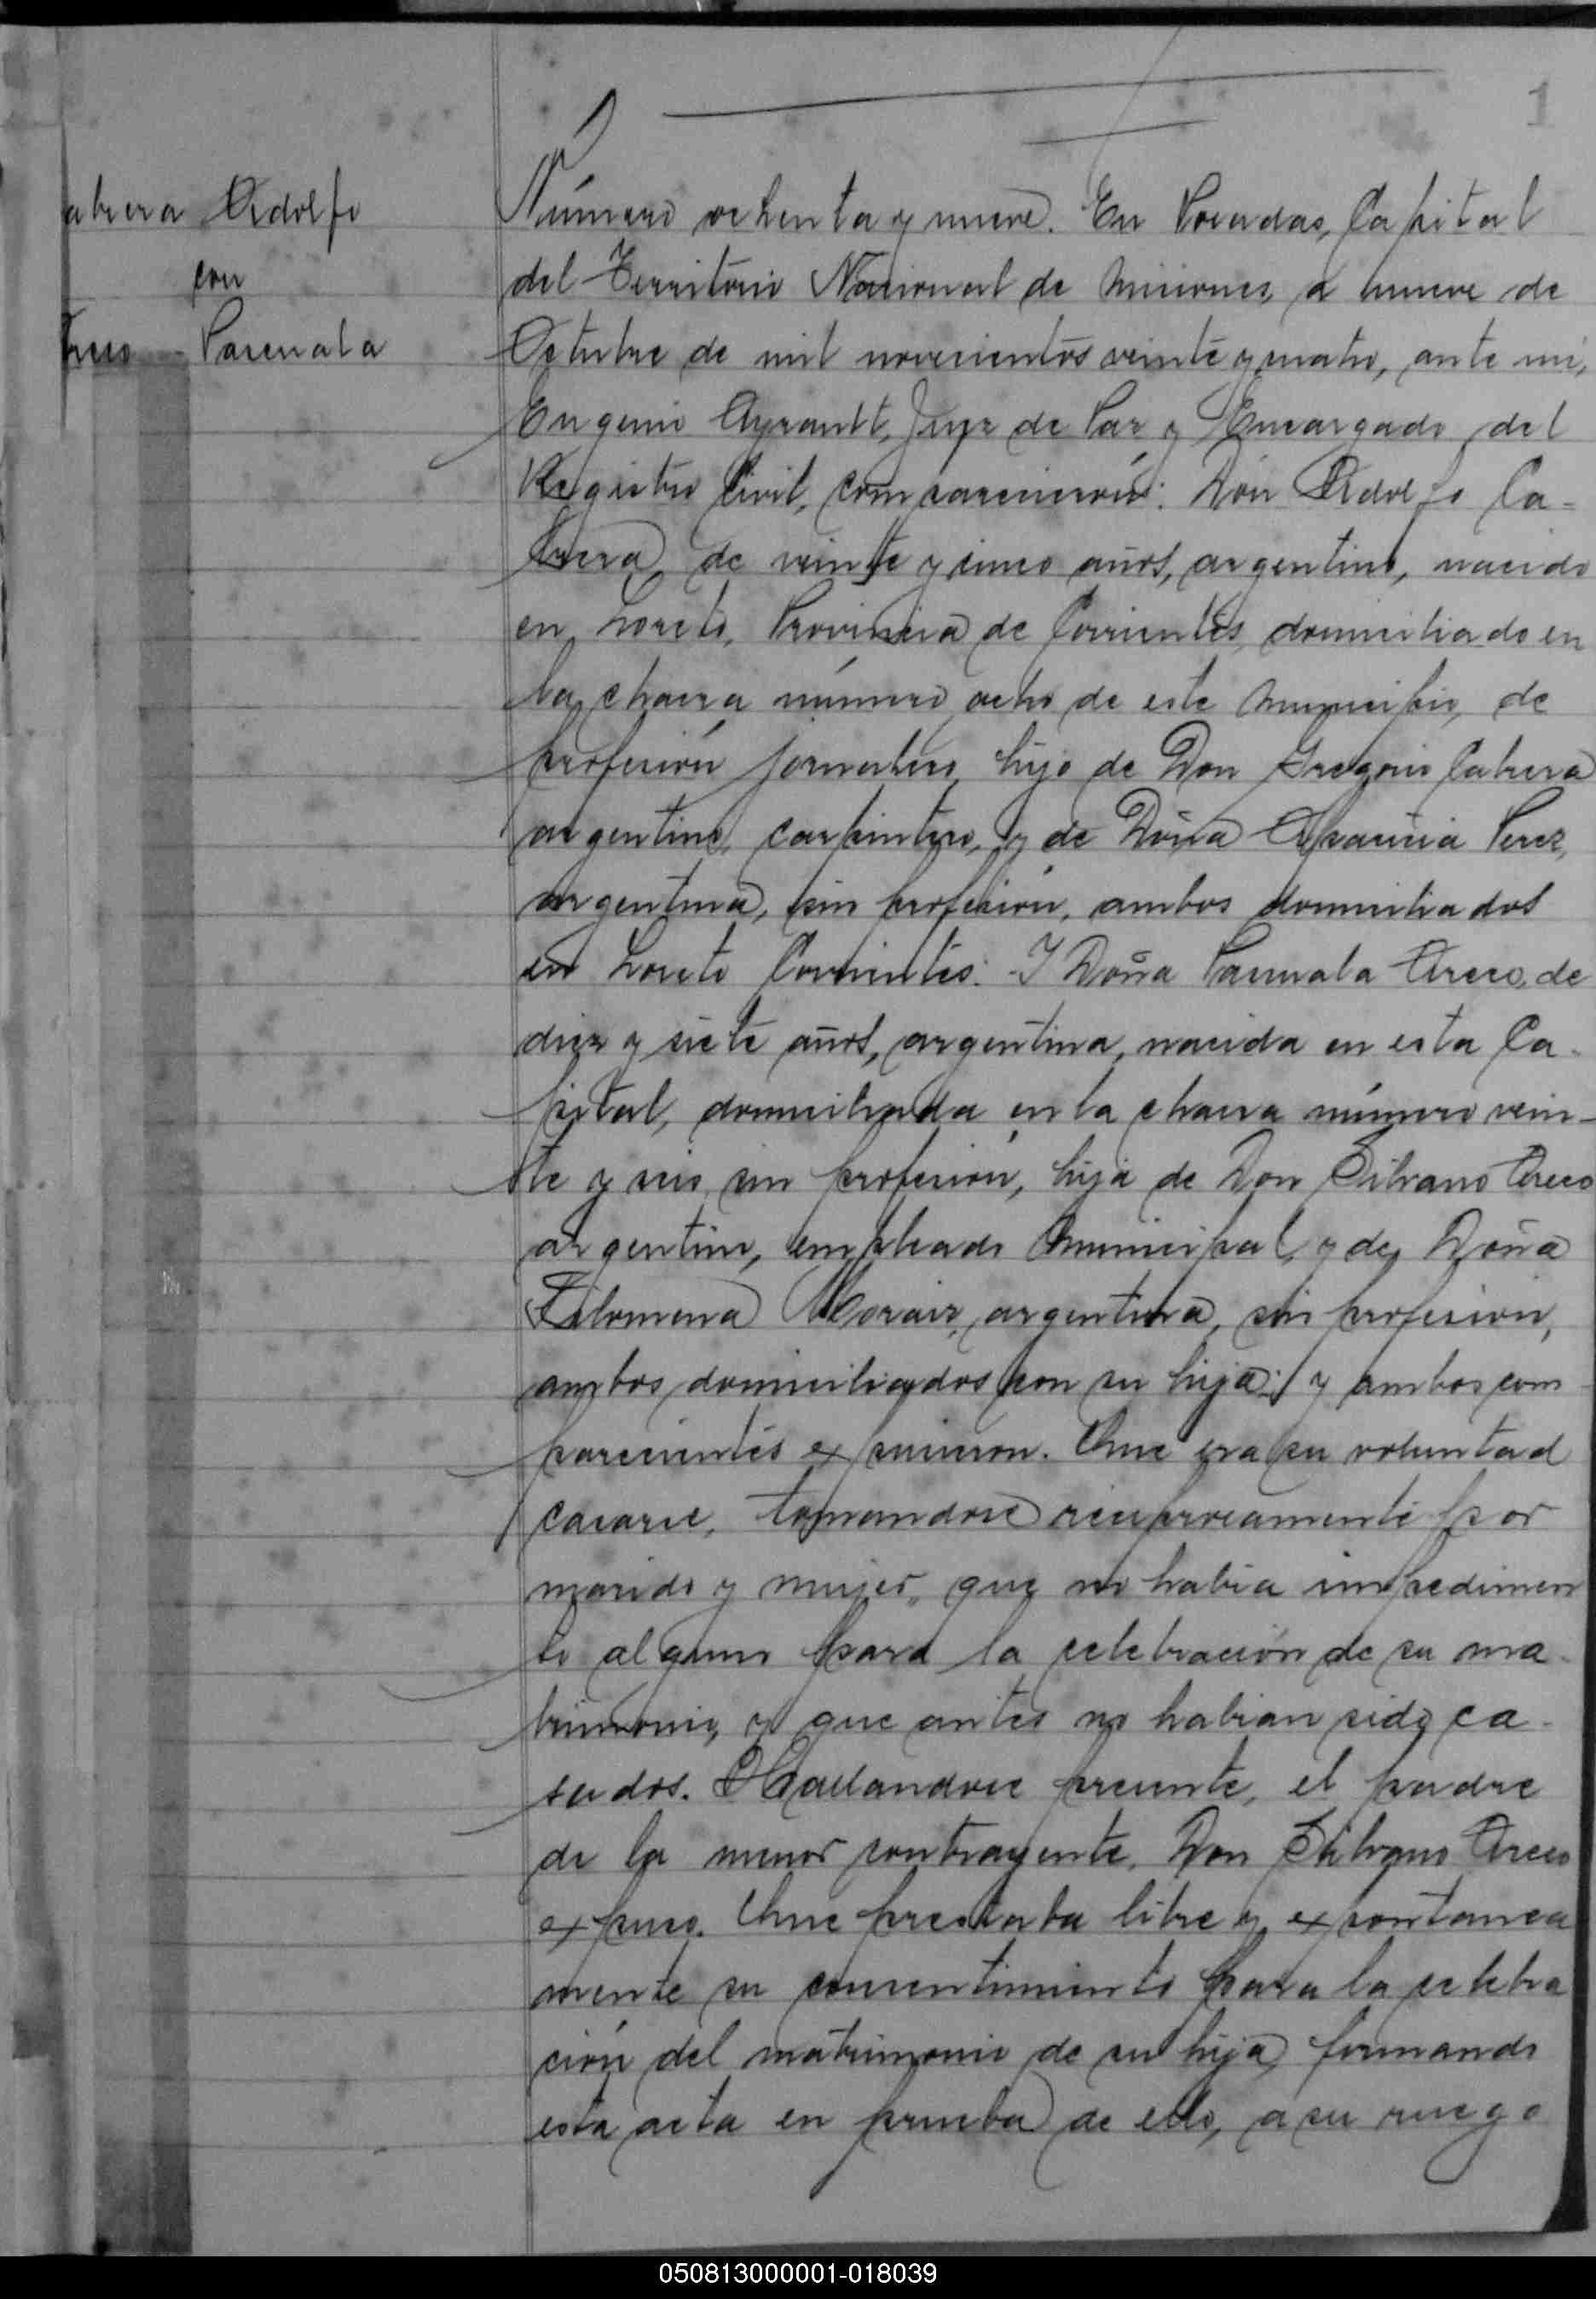 1
abrera Adolfo
con
Areco Pascuala
Número ochenta y nueve. En Posadas, Capital
del Territorio Nacional de Misiones, a nueve de
Octubre de mil novecientos veinte y cuatro, ante mi,
Eugenio Ayrault, Juez de Paz y Encargado del
Registro Civil, comparecieron: Don Adolfo Ca-
brera, de veinte y cinco años, argentino, nacido
en Loreto, Provincia de Corrientes, domiciliado en
la chacra número ocho de este Municipio, de
profesión jornalero, hijo de Don Gregorio Cabrera
argentino, carpintero, y de Doña Aparicia Perez,
argentina, sin profesión, ambos domiciliados
en Loreto Corrientes. Y Doña Pascuala Areco, de
diez y siete años, argentina, nacida en esta Ca-
pital, domiciliada en la chacra número vein-
te y seis, sin profesión, hija de Don Silvano Areco
argentino, empleado Municipal, y de Doña
Filomena Morais, argentina, sin profesión,
ambos domiciliados con su hija; y ambos com
parecientes expusieron. Que era su voluntad
casarse, tomandose reciprocamente por
marido y mujer, que no habia impedimen
to alguno para la celebración de su ma-
trimonio, y que antes no habian sido ca-
sados. Hallandose presente, el padre
de la menor contrayente, Don Silvano Areco
expuso. Que prestaba libre y expontanea
mente su consentimiento para la celebra
ción del matrimonio de su hija, firmando
esta acta en prueba de ello, a su ruego
050813000001-018039